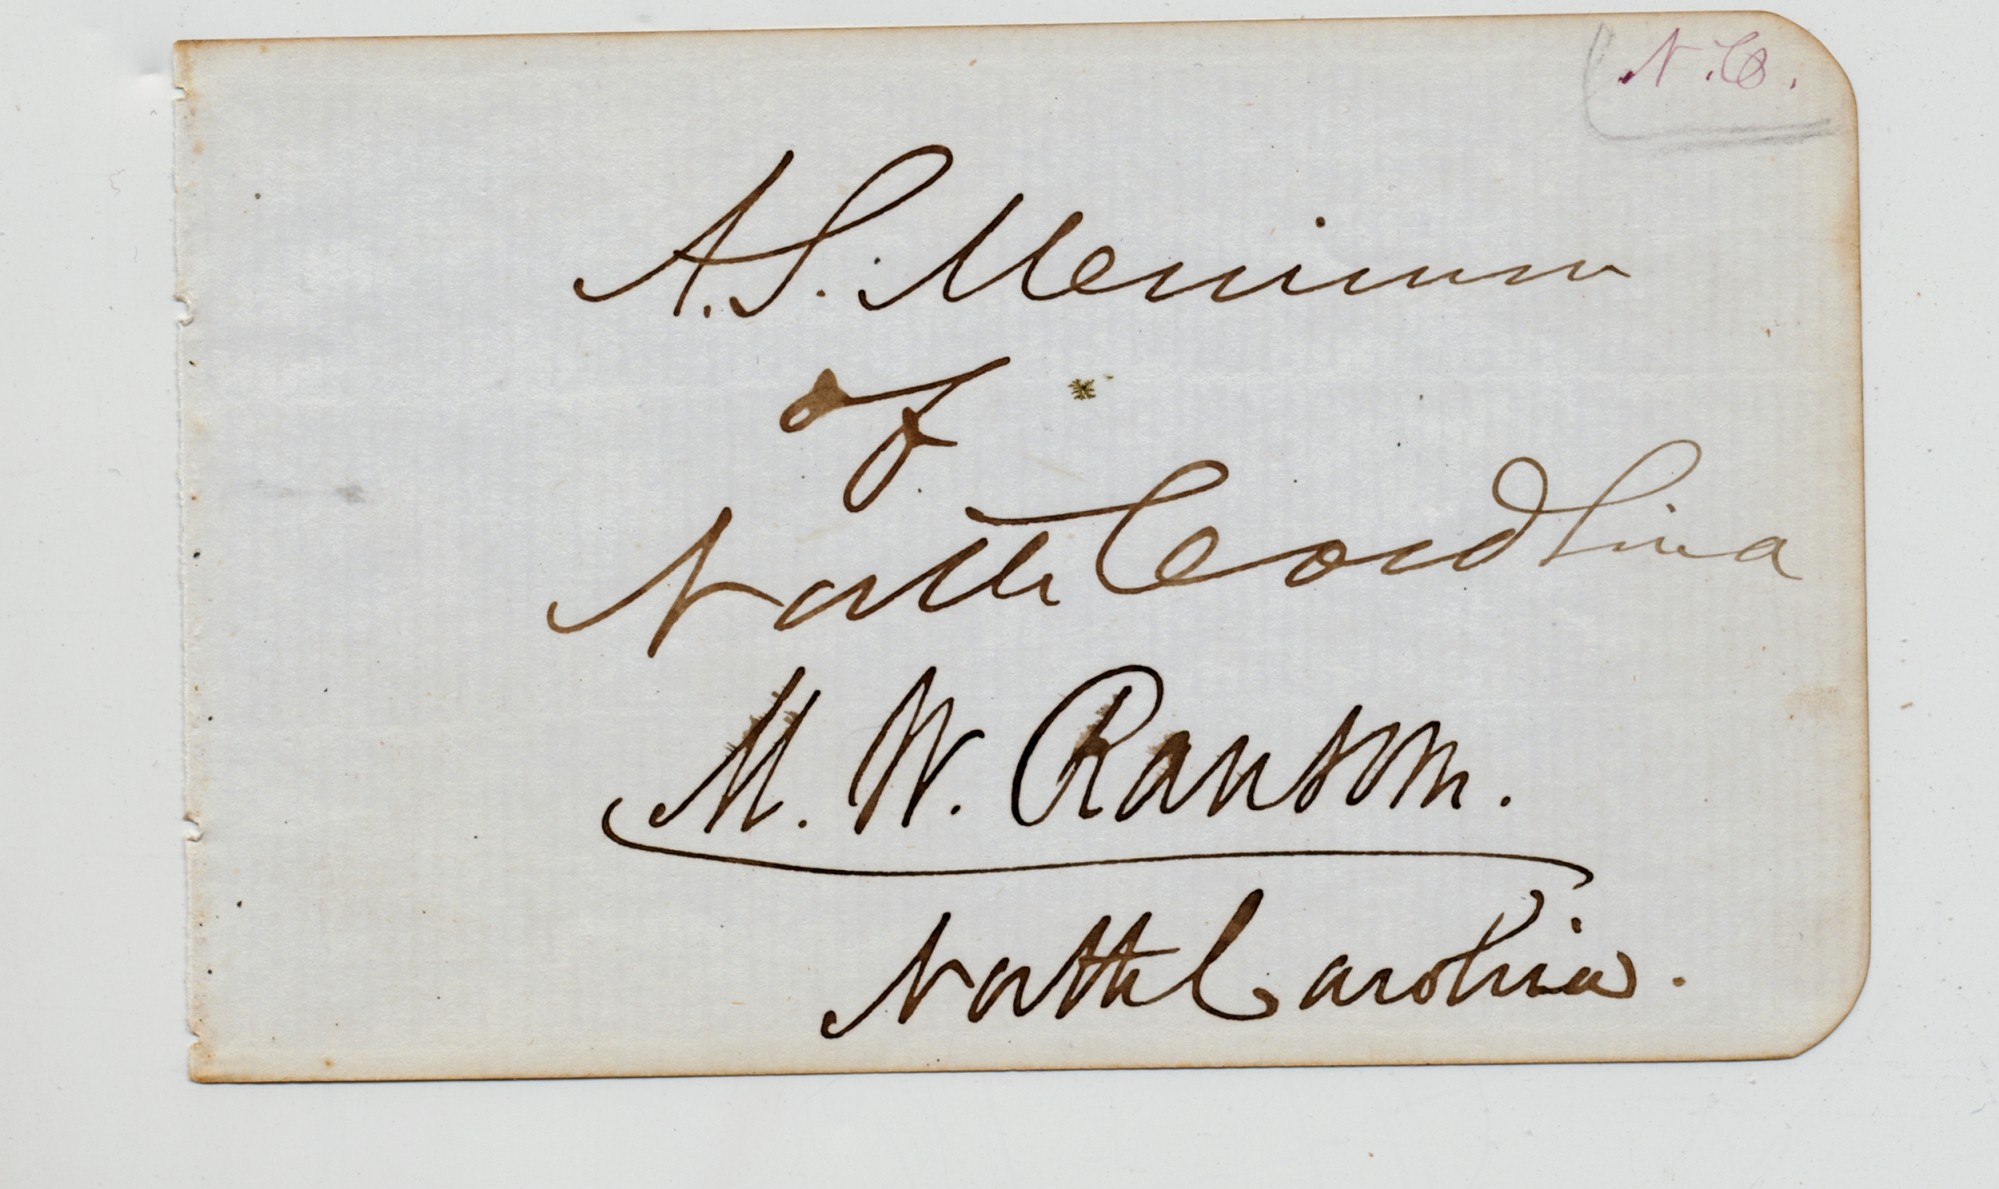 N.C.
A.S. Merrimon
of
North Carolina
M. W. Ransom.
North Carolina.